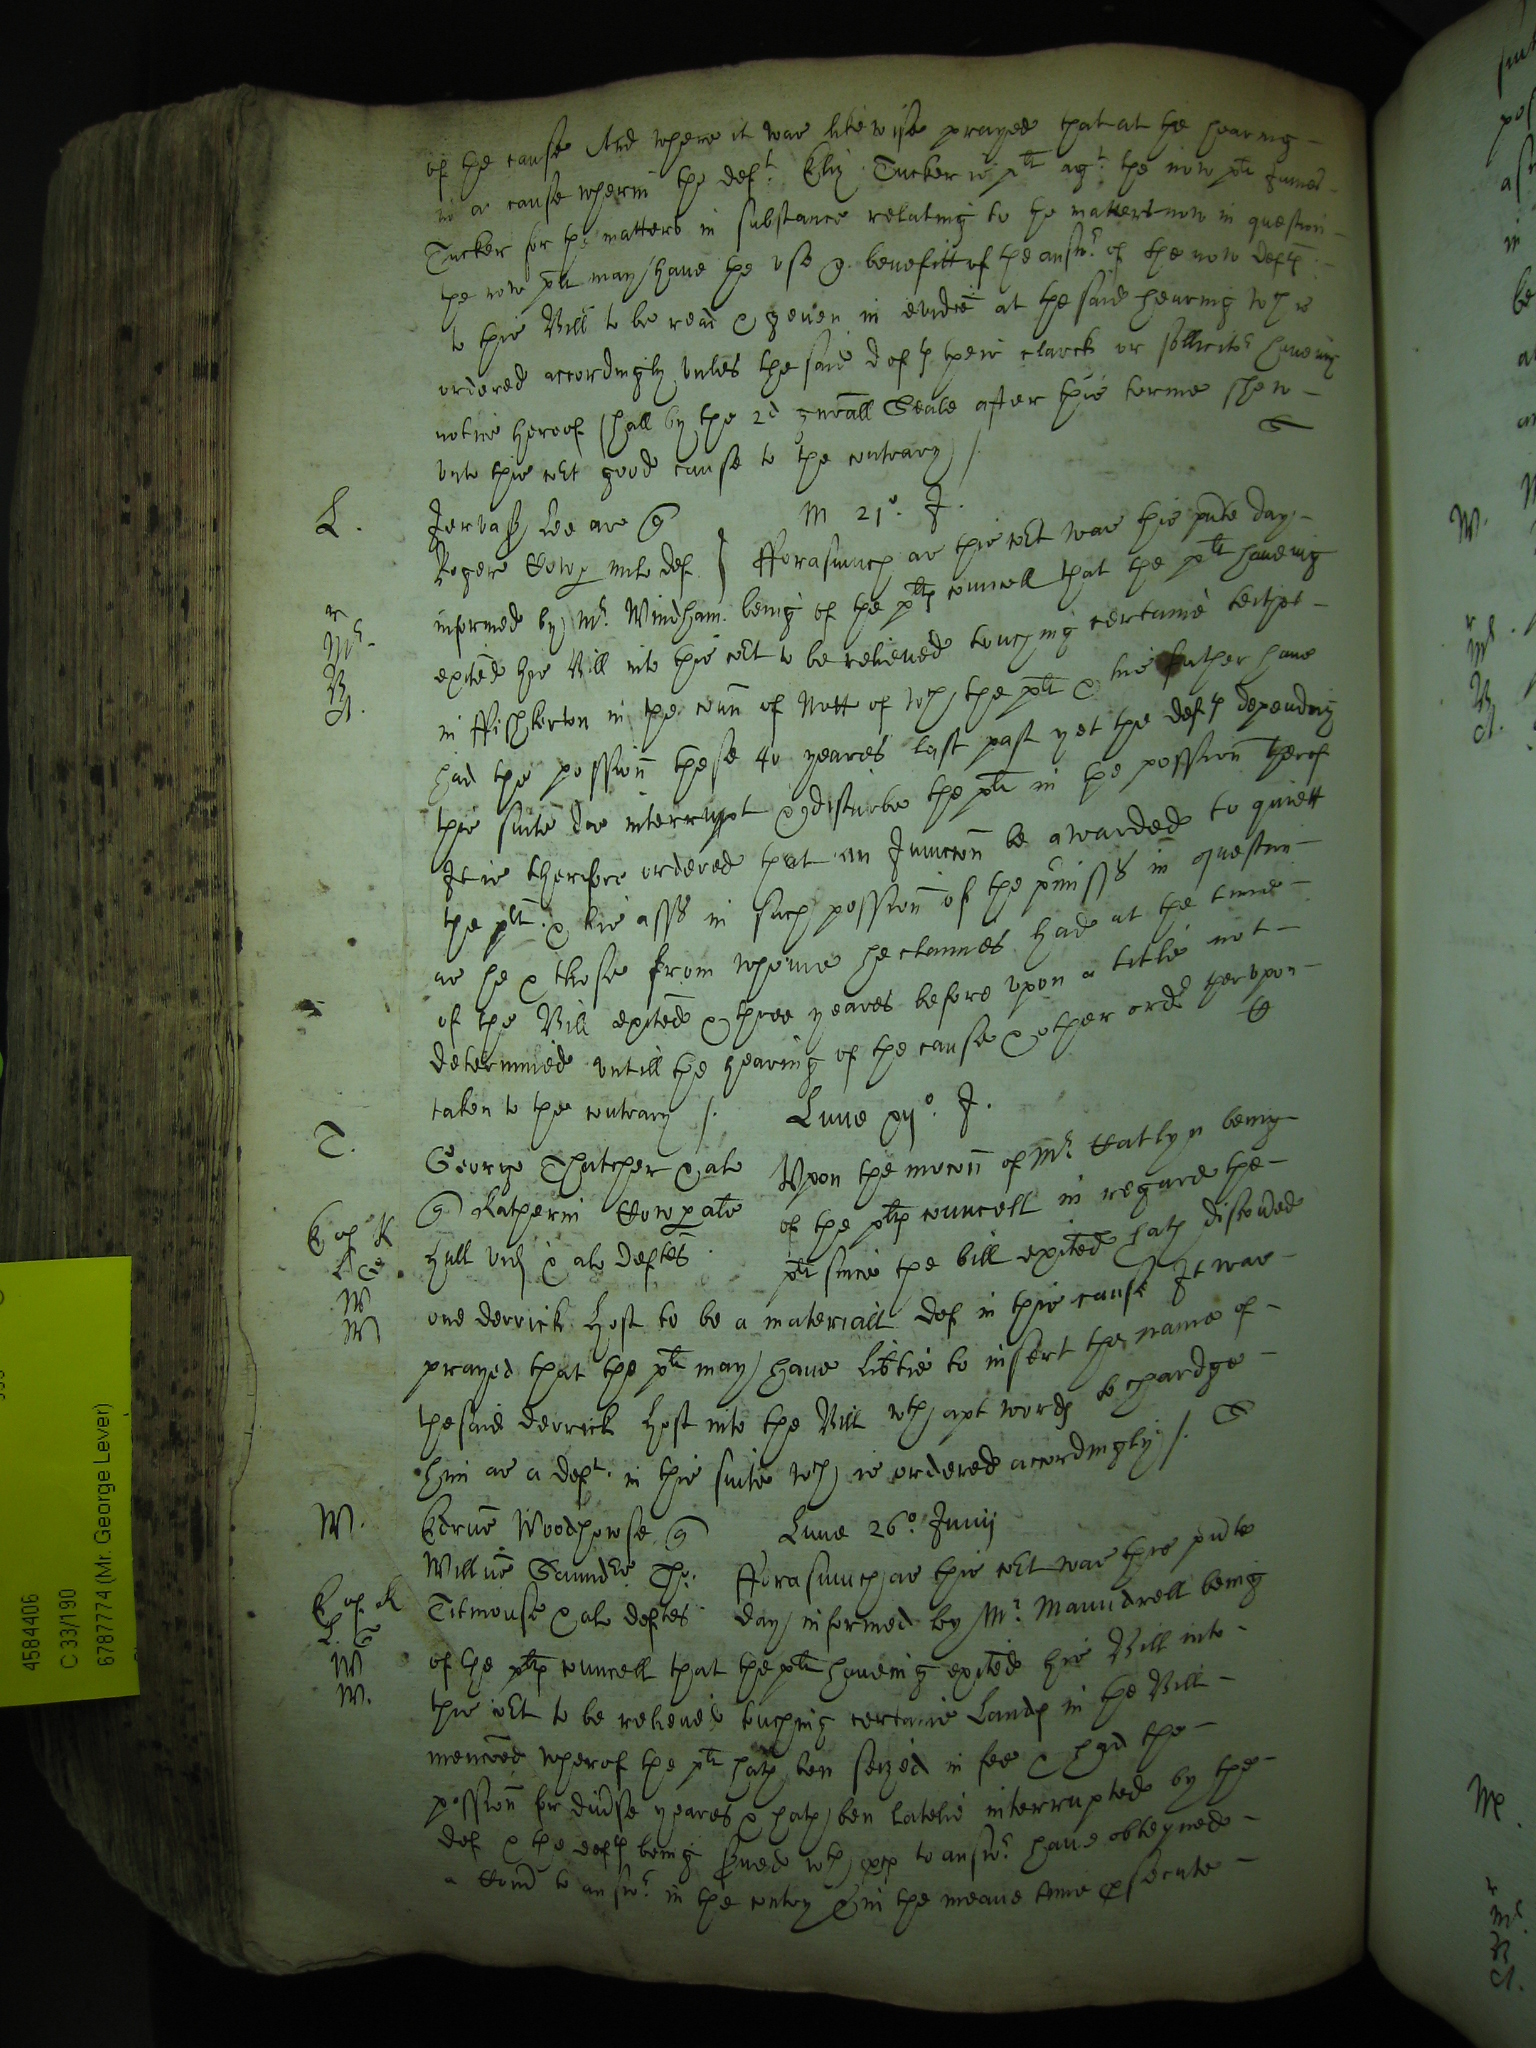 of the cause And where it was likewise prayed that at the hearing
in a cause wherin the deft. Eliz. Tucker is plt agt. the now plt James
Tucker for the matters in substance relating to the matters now in question
the now plt may have the use & benefitt of the answr. of the now defts
to this Bill to be read & geven in evidce at the said hearing wch is
ordered accordingly unles the said defts their clarck or sollicitr haveing
notice hereof shall by the 2d gnrall Seale after this terme shew
unto this cort good cause to the contrary /.
L.
Jervass Lee ar &
M 21o. J.
Rogere Cowp mil def
Fforasmuch as this cort was this pnte day
informed by Mr. Windham being of the plts councell that the plt haveing
exited his Bill into this cort to be relieved touching certaine
in Ffishkerton in the coun of Nott of wch the plt & his father have
had the possion these 40 yeares last past yet the defts depending
this suite doe interrupt & disturbe the plt in the possion therof
It is therefore ordered that an Junccon be awarded to quiett
the plt & his asss in such possion of the pmisss in question
as he & those from whome he claimes had at the time
of the Bill exited & three yeares before upon a title not
determined untill the hearing of the cause & other ordr therupon
taken to the contrary /.
T.
Lune J.
George Thatcher & als
Upon the mocon of Mr. Catlyn being
Katherin Cowp als
of the plts councell in regard the
Hull vid & als deftes
plt since the bill exited hath discoved
one derrick Host to be a materiall def in this cause It was
prayed that the plt may have libtie to insert the name of
the said derrick Host into the Bill wth apt words to chardge
him as a deft. in this suite wch is ordered accordingly /.
W.
Edrus Woodhowse
Lune 26o. Junij
Willus Saunders Tho:
Fforasmuch as this cort was this pnte
Titmouse & als deftes
day informed by Mr. Maundrell being
of the plts councell that the plt haveing exited his Bill into
this cort to be relieved touching certaine Lands in the Bill
menconed wherof the plt hath ben seized in fee & had the
possion for divse yeares & hath ben latelie interrupted by the
def & the defts being served wth pces to answr. have obteyned
a Comd to answr. in the contry & in the meane time psecute
4584406
C 33/190
6787774 (Mr. George Lever)